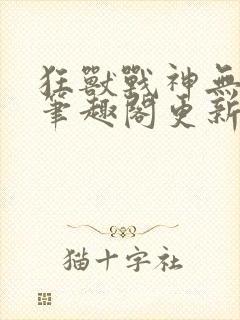 狂獸戰神無
筆趣閣更新
猫十字社